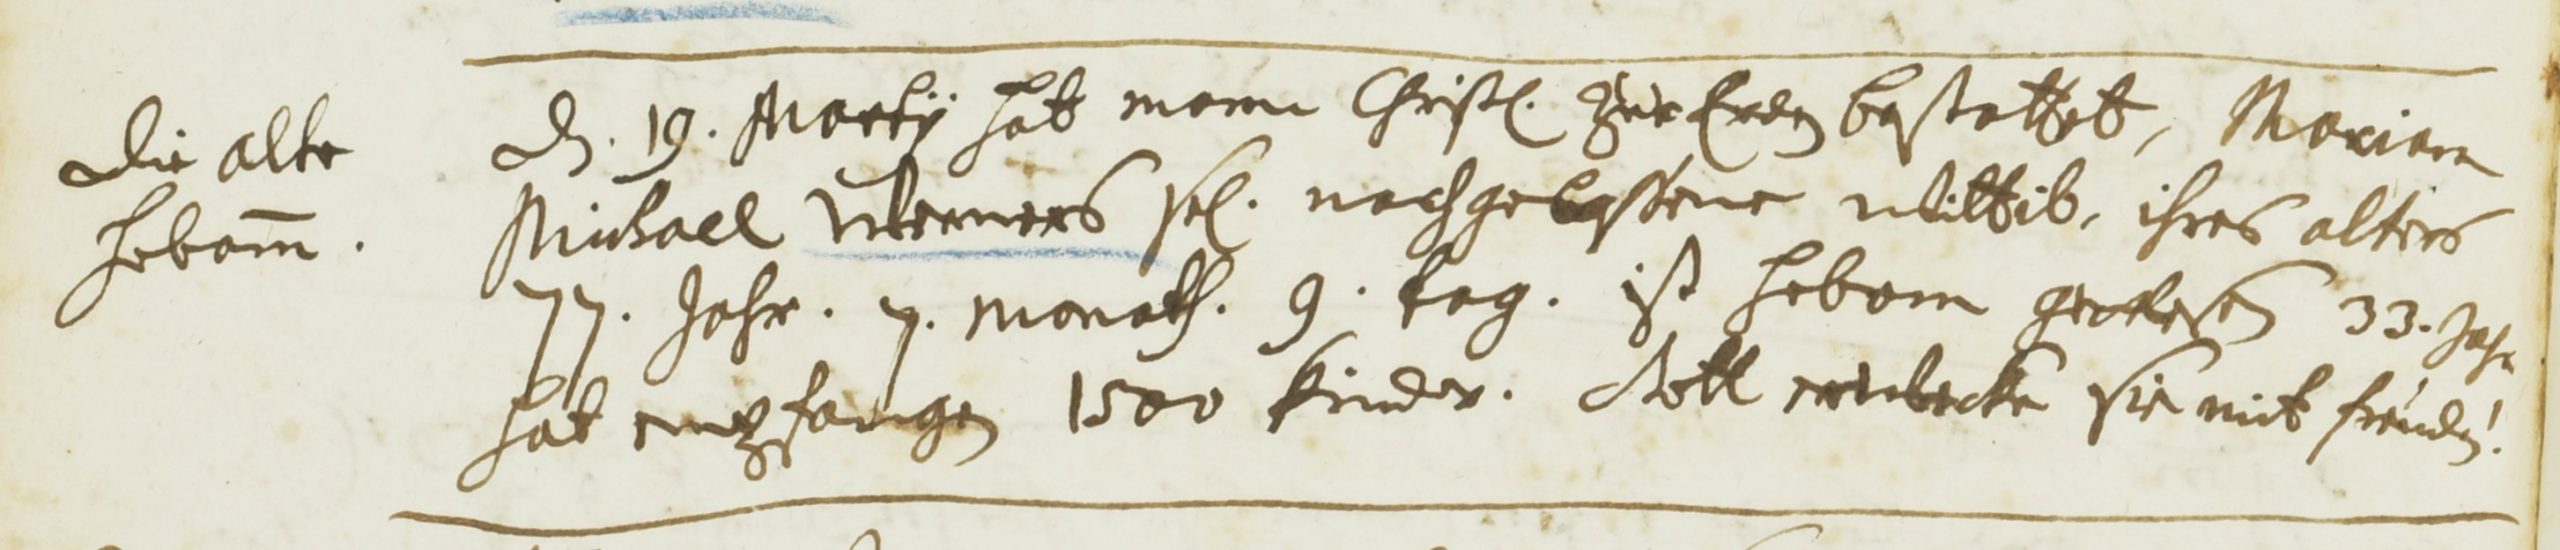 Die alte
Hebam̅.
D. 19. Martÿ hat mann Christl. zur Erden bestattet, Mariam
Michael Werners sel. nachgelassene Wittib, ihres alters
77. Jahr. 7. Monath. 9. tag. ist Hebam gewesen 33. Jahr
hat empfangen 1500 Kinder. Gott erwecke sie mit freuden!